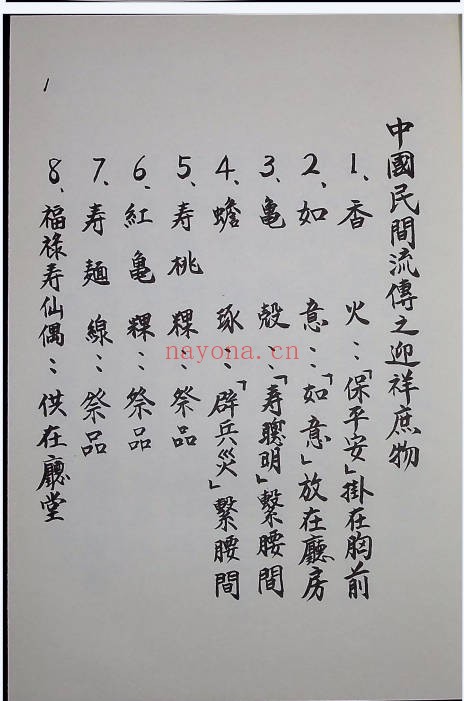 中國民間流傳之迎祥庶物
1、香火：「保平安」掛在胸前
2、如意：「如意」放在廳房
3、亀殼：「寿聰明」繫腰間
4、蟾琢：「辟兵災」繫腰間
5、寿桃粿：祭品
6、紅亀粿：祭品
7、寿麵線：祭品
8、福祿寿仙偶：供在廳堂
1
nayona.cn